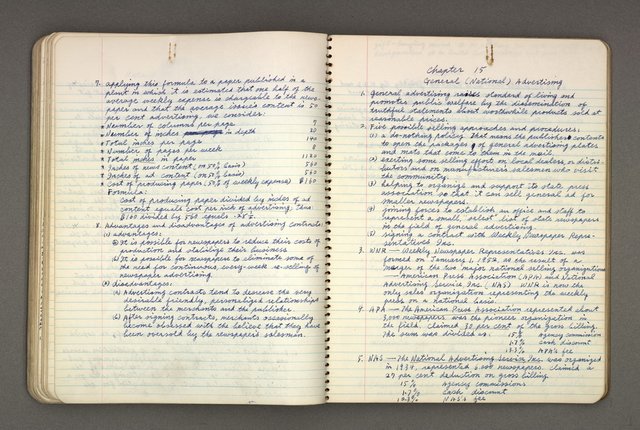 7. applying this formula to a paper published in a
plant in which it is estimated that one half of the
average weekly expense is chargeable to the news-
paper and that the average issue's content is 50
per cent advertising, we consider:
* Number of columns per page 7
* Number of inches in depth 20
* Total inches per page 140
* Number of pages per week 8
* Total inches in paper 1120
* Inches of news content (on 50% basis) 560
* Inches of ad content (on 50% basis) 560
* Cost of producing paper (50% of weekly expense) $160
Formula:
Cost of producing paper divided by inches of ad
content equals cost per inch of advertising, thus
$160 divided by 560 equals
8. Advantages and disadvantages of advertising contracts.
(1) advantages:
(a) It is possible for newspapers to reduce their costs of
production and stabilize their business
(b) It is possible for newspapers to eliminate some of
the need for continuous, every-week re-selling of
newspaper advertising
(2) disadvantages:
(a) Advertising contracts tend to the very
desirable friendly, personalized relationships
between the merchants and the publisher.
(b) After signing contracts, merchants occasionally
become obsessed with the belief that they have
been oversold by the newspaper's salesman.
Chapter 15
General (National) Advertising
1. General advertising raises standard of living and
promotes public welfare by the dissemination of
truthful statements about worthwhile products sold at
reasonable prices.
2. Five possible selling approaches and procedures:
(1) a do-nothing policy. That means the publisher is content
to open the packages of general advertising plates
and mats that come to them in the mail.
(2) exerting some selling effort on local dealers, on distri-
butors and on manufacturers salesmen who visit
the community.
(3) helping to organize and support its state press
association so that it can sell general ad for
smaller newspapers.
(4) joining forces to establish an office and staff to
represent a small, select list of state newspapers
in the field of general advertising.
(5) signing a contract with Weekly Newspaper Repre-
sentatives Inc.
3. WNR — Weekly Newspaper Representatives Inc. was
formed on January 1, as the result of a
merger of the two major national selling organizations
— American Press Association (APA) and National
Advertising Service, Inc. (NAS) WNR is now the
only sales organization representing the weekly
press on a national basis.
4. APA — The American Press Association represented about
3,000 newspapers was the pioneer organization in
the field. Claimed 30 per cent of the gross billing.
The sum was divided as: 15% agency commission
cash discount
APA's fee
5. NAS — The National Advertising Service Inc. was organized
in represented newspapers. claimed a
27 per cent deduction on gross billing
15% agency commissions
cash discount
NAS's fee